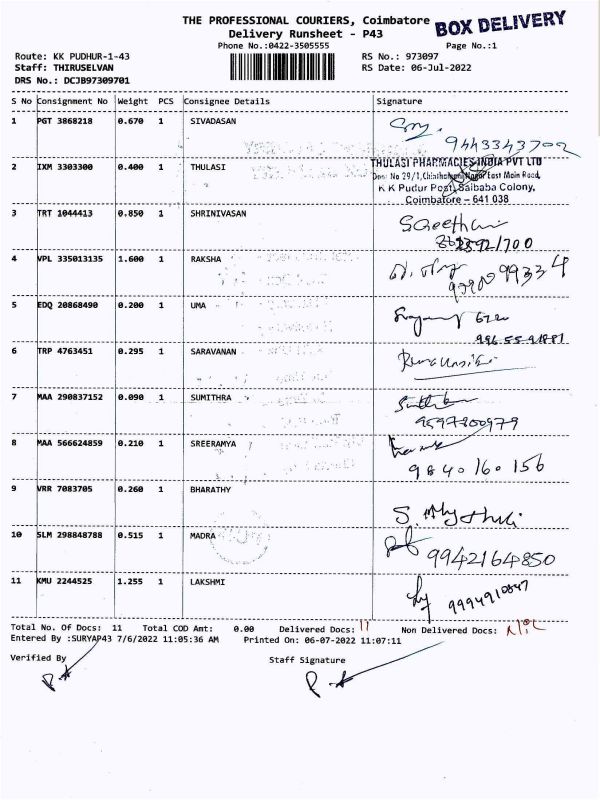 THE PROFESSIONAL COURIERS, Coimbatore
BOX DELIVERY
Delivery Runsheet - P43
Phone No.:0422-3505555
Page No.:1
Route: KK PUDHUR-1-43
RS No.: 973097
Staff: THIRUSELVAN
RS Date: 06-Jul-2022
DRS No.: DCJB97309701
S No Consignment No Weight PCS Consignee Details Signature
1 PGT 3868218 0.670 1 SIVADASAN
9443343702
2 IXM 3303300 0.400 1 THULASI
THULASI PHARMACIES INDIA PVT LTD
Door No 29/1, Nagar East Main Road,
K K Pudur Post, Saibaba Colony,
Coimbatore - 641 038
3 TRT 1044413 0.850 1 SHRINIVASAN
4 VPL 335013135 1.600 1 RAKSHA
5 EDQ 20868490 0.200 1 UMA
6 TRP 4763451 0.295 1 SARAVANAN
7 MAA 290837152 0.090 1 SUMITHRA
9597800979
8 MAA 566624859 0.210 1 SREERAMYA
9840160156
9 VRR 7083705 0.260 1 BHARATHY
S. Mythili
10 SLM 298848788 0.515 1 MADRA
9942164850
11 KMU 2244525 1.255 1 LAKSHMI
9994910847
Total No. Of Docs: 11 Total COD Amt: 0.00 Delivered Docs: 11 Non Delivered Docs: Nil
Entered By :SURYAP43 7/6/2022 11:05:36 AM Printed On: 06-07-2022 11:07:11
Verified By
Staff Signature